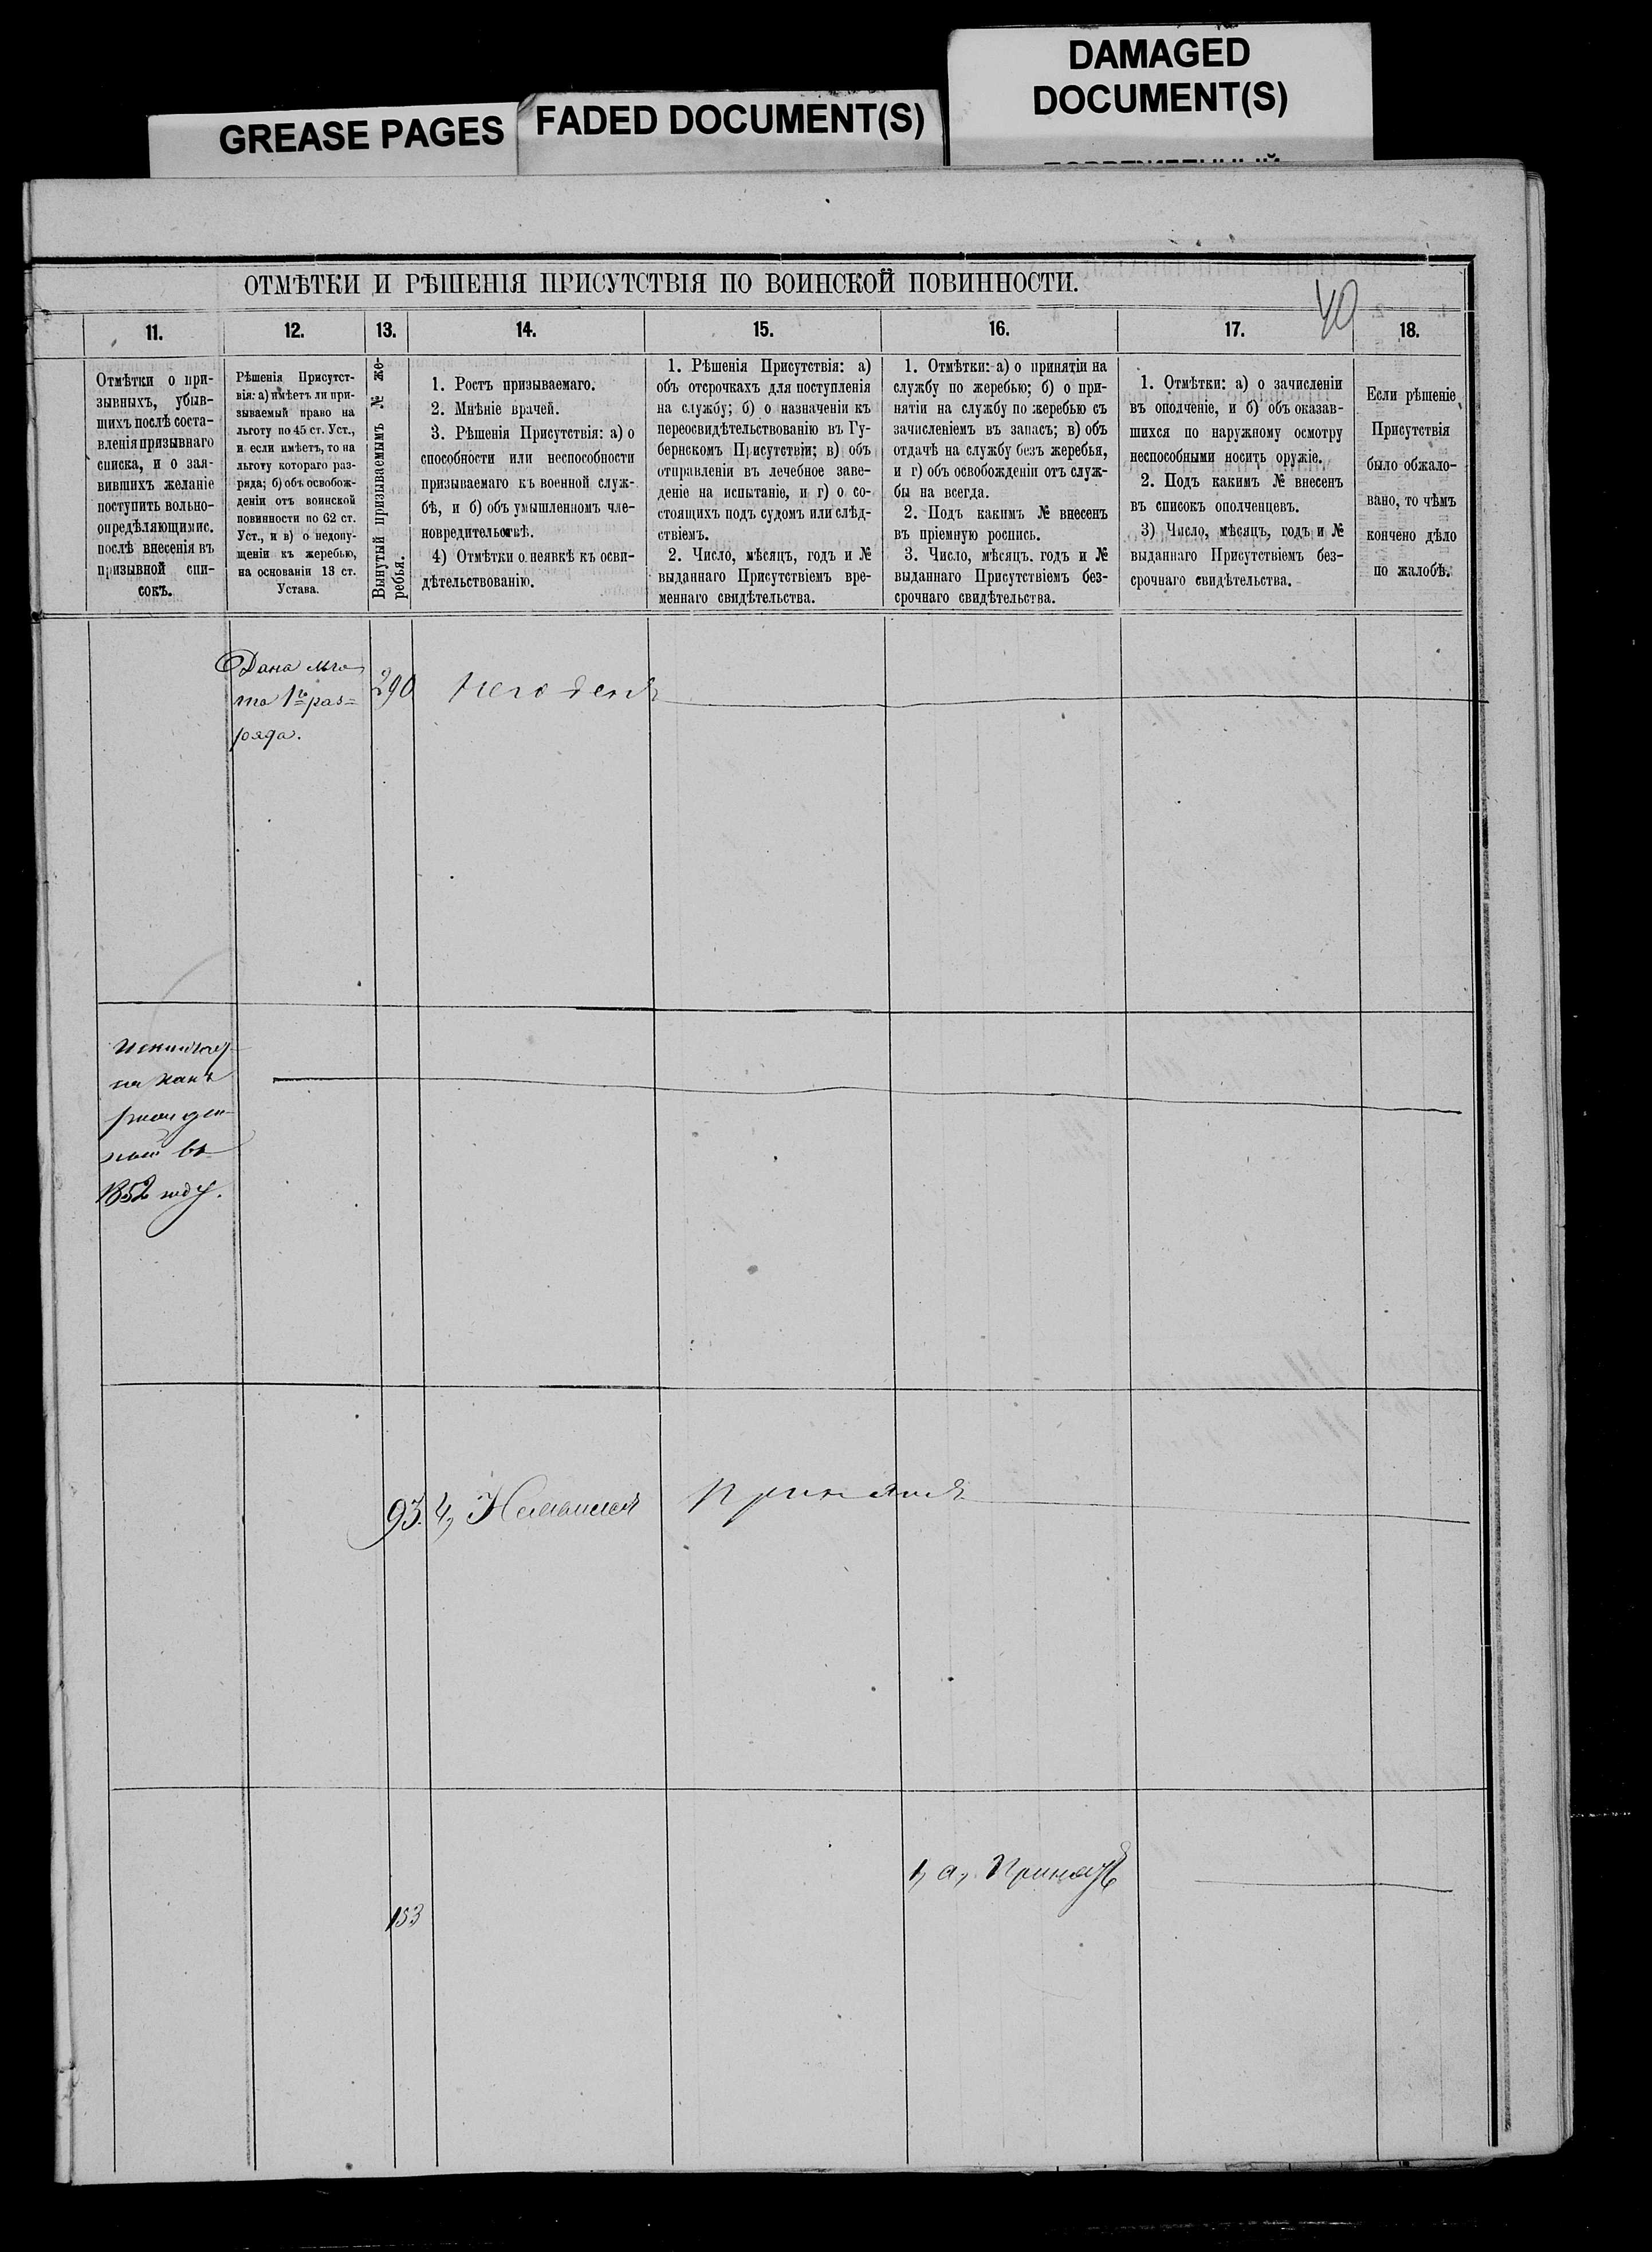 DAMAGED
DOCUMENT(S)
GREASE PAGES
FADED DOCUMENT(S)
ОТМѢТКИ И РѢШЕНІЯ ПРИСУТСТВІЯ ПО ВОИНСКОЙ ПОВИННОСТИ.
40
11.
12.
13.
14.
15.
16.
17.
18.
Отмѣтки о при-
зывныхъ, убыв-
шихъ послѣ соста-
вленія призывнаго
списка, и о зая-
вившихъ желаніе
поступить вольно-
опредѣляющимис.
послѣ внесенія въ
призывной спи-
сокъ.
Рѣшенія Присутст-
вія: а) имѣетъ ли при-
зываемый право на
льготу по 45 ст. Уст.,
и если имѣетъ, то на
льготу котораго раз-
ряда; б) объ освобож-
деніи отъ воинской
повинности по 62 ст.
Уст., и в) о недопу-
щеніи къ жеребью,
на основаніи 13 ст.
Устава.
Вынутый призываемымъ № же-
ребья.
1. Ростъ призываемаго.
2. Мнѣніе врачей.
3. Рѣшенія Присутствія: а) о
способности или неспособности
призываемаго къ военной служ-
бѣ, и б) объ умышленномъ чле-
новредительствѣ.
4) Отмѣтки о неявкѣ къ осви-
дѣтельствованію.
1. Рѣшенія Присутствія: а)
объ отсрочкахъ для поступленія
на службу; б) о назначеніи къ
переосвидѣтельствованію въ Гу-
бернскомъ Присутствіи; в) объ
отправленіи въ лечебное заве-
деніе на испытаніе, и г) о со-
стоящихъ подъ судомъ или слѣд-
ствіемъ.
2. Число, мѣсяцъ, годъ и №
выданнаго Присутствіемъ вре-
меннаго свидѣтельства.
1. Отмѣтки: а) о принятіи на
службу по жеребью; б) о при-
нятіи на службу по жеребью съ
зачисленіемъ въ запасъ; в) объ
отдачѣ на службу безъ жеребья,
и г) объ освобожденіи отъ служ-
бы на всегда.
2. Подъ какимъ № внесенъ
въ пріемную роспись.
3. Число, мѣсяцъ, годъ и №
выданнаго Присутствіемъ без-
срочнаго свидѣтельства.
1. Отмѣтки: а) о зачисленіи
въ ополченіе, и б) объ оказав-
шихся по наружному осмотру
неспособными носить оружіе.
2. Подъ какимъ № внесенъ
въ списокъ ополченцевъ.
3) Число, мѣсяцъ, годъ и №
выданнаго Присутствіемъ без-
срочнаго свидѣтельства.
Если рѣшеніе
Присутствія
было обжало-
вано, то чѣмъ
кончено дѣло
по жалобѣ.
Дана льго
та 1го раз=
ряда.
290
негоденъ
какъ
рожден-
ный въ
1852 году.
93.
4,
принятъ
1, а, Принятъ
153